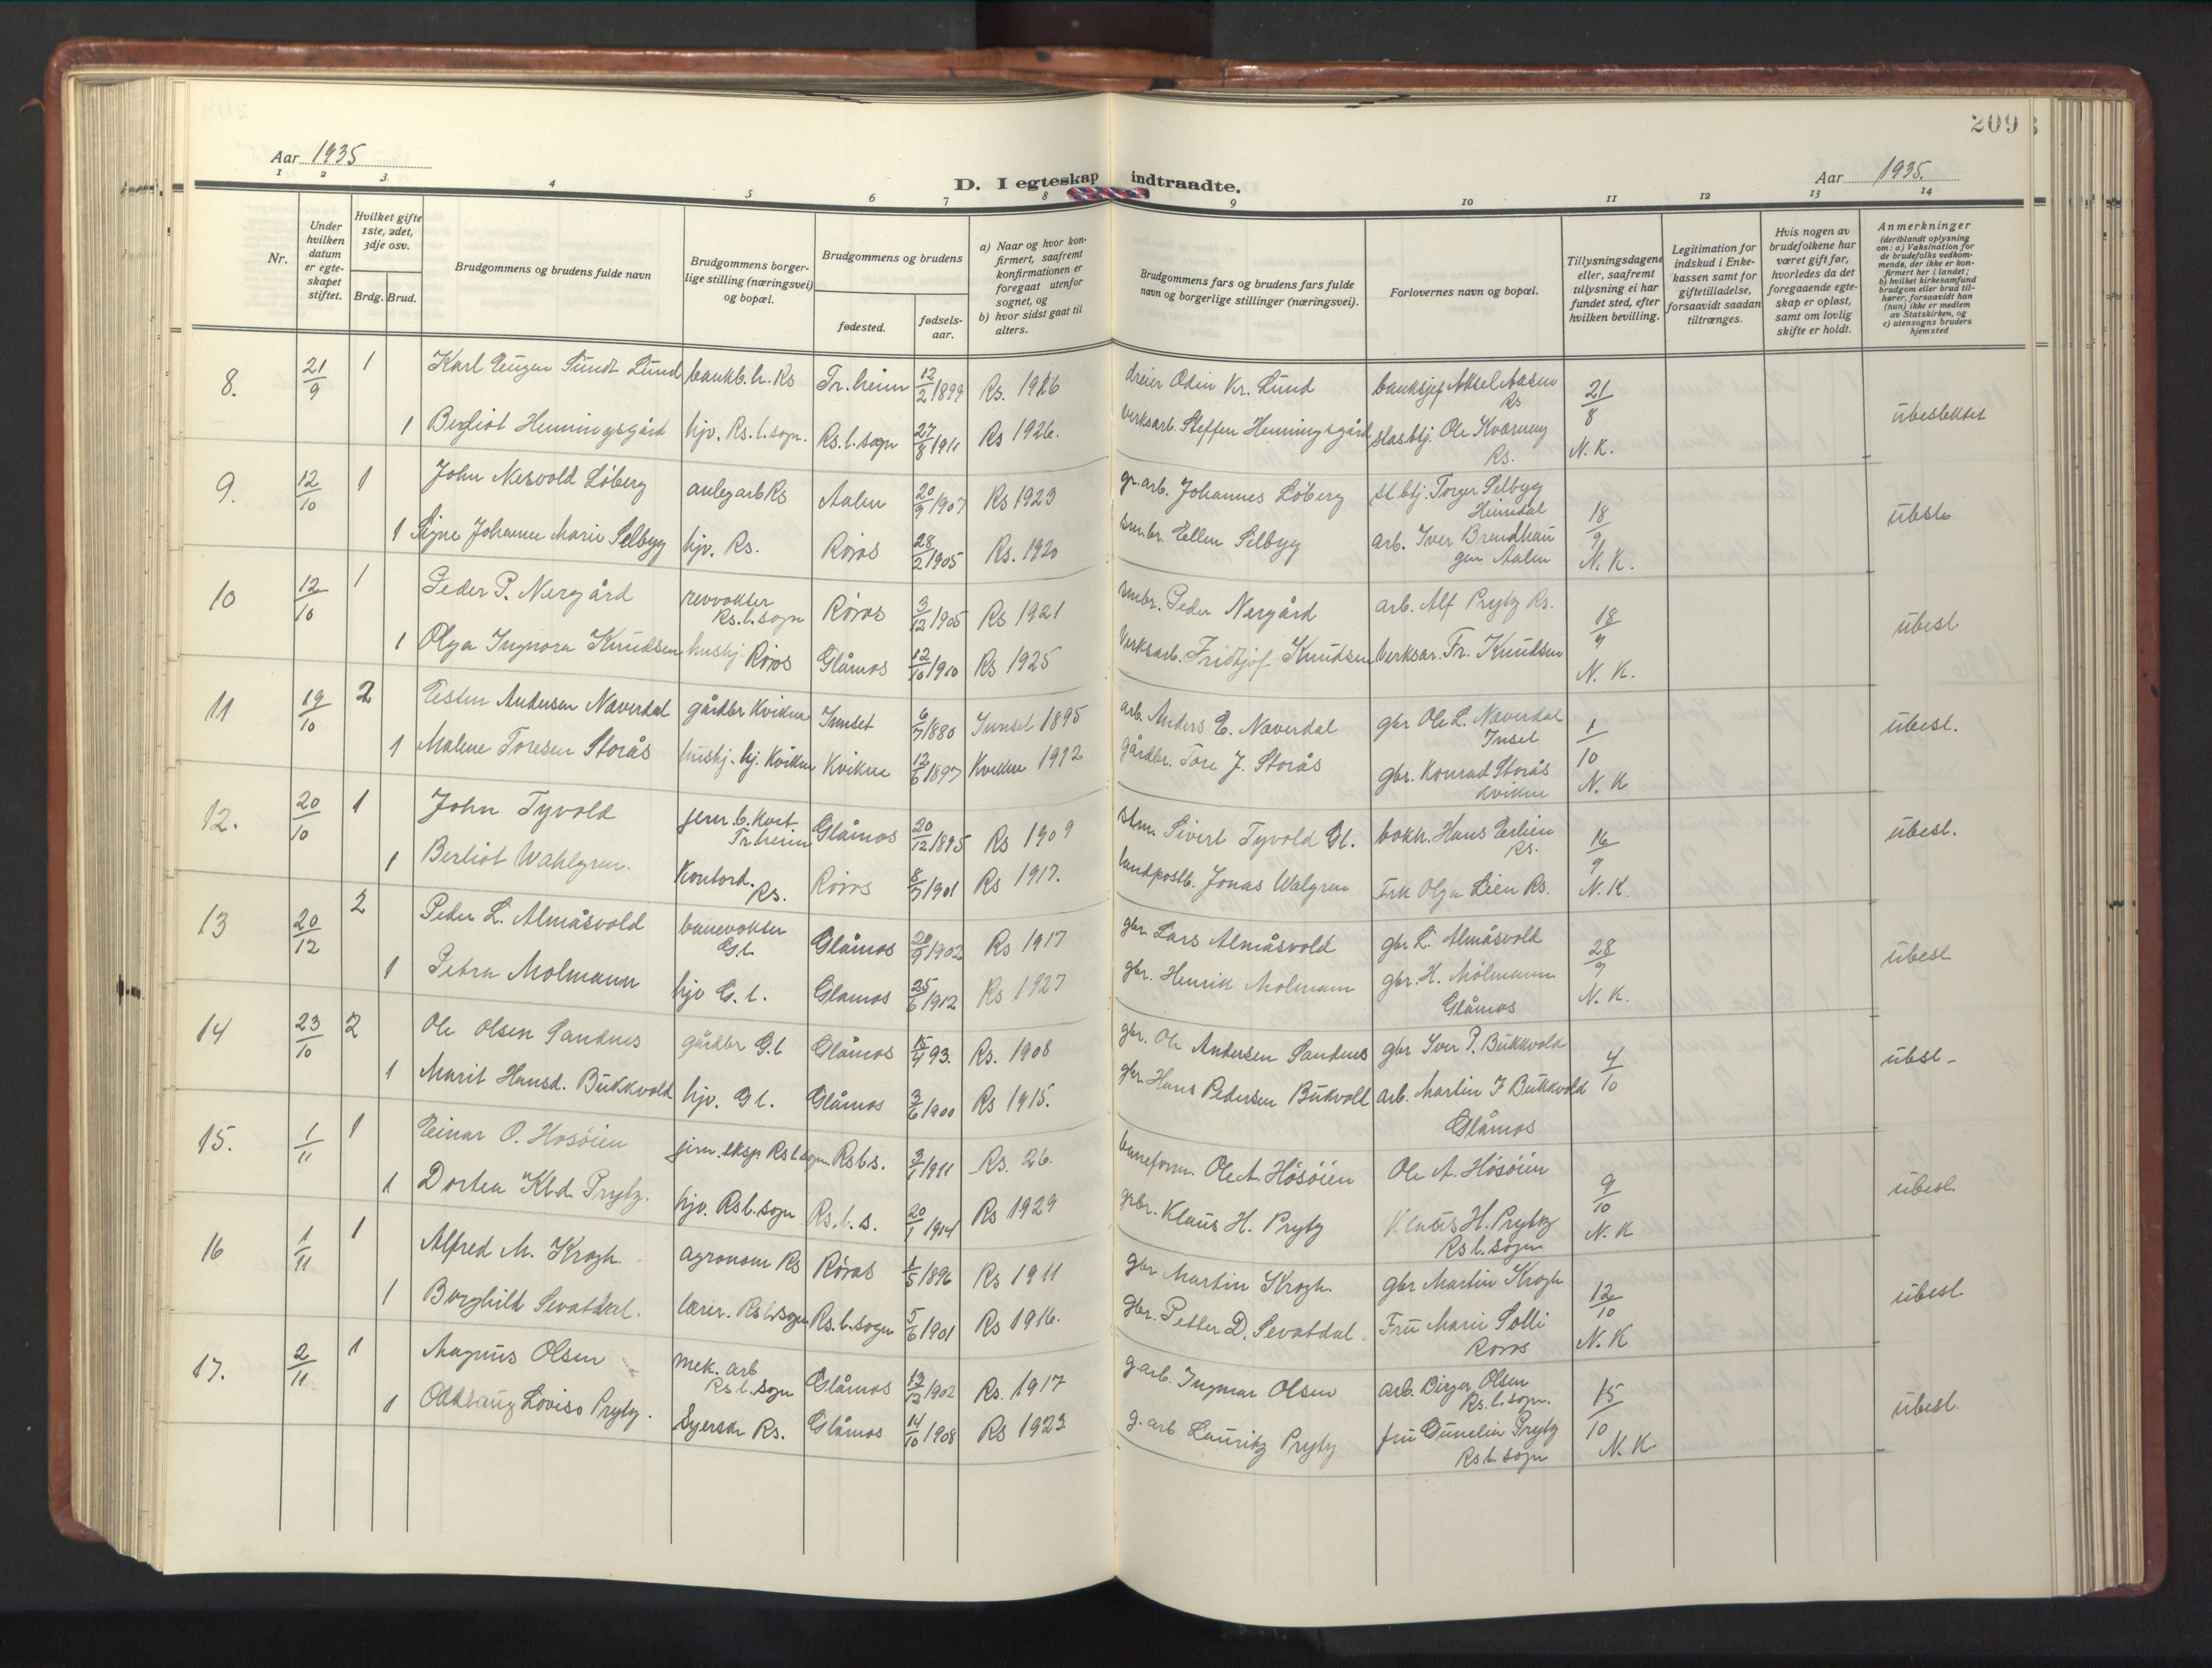 209
Aar 1935
D. I egteskap indtraadte.
Aar 1935.
1 2 3 4 5 6 7 8 9 10 11 12 13 14
Nr.
Under hvilken datum er egteskapet stiftet.
Hvilket gifte 1ste, 2det, 3dje osv.
Brdg. Brud.
Brudgommens og brudens fulde navn
Brudgommens borgerlige stilling (næringsvei) og bopæl.
Brudgommens og brudens
fødested.
fødselsaar.
a) Naar og hvor konfirmert, saafremt konfirmationen er foregaat utenfor sognet, og
b) hvor sidst gaat til alters.
Brudgommens fars og brudens fars fulde navn og borgerlige stillinger (næringsvei).
Forlovernes navn og bopæl.
Tillysningsdagene eller, saafremt tillysning ei har fundet sted, efter hvilken bevilling.
Legitimation for indskud i Enkekassen samt for giftetilladelse, forsaavidt saadan tiltrænges.
Hvis nogen av brudefolkene har været gift før, hvorledes da det foregaende egteskap er opløst, samt om lovlig skifte er holdt.
Anmerkninger
(deriblandt oplysning om: a) Vaksination for de brudefolks vedkommende, der ikke er konfirmert her i landet; b) hvilket kirkesamfund brudgom eller brud tilhører, forsaavidt han (hun) ikke er medlem av Statskirken, og c) utensogns bruders hjemsted
8. 21/9 1 Karl Eugen Sundt Lund bankb.h. Rs Tr.heim 12/2 1899 Rs. 1926 dreier Odin Kr. Lund banksjef Aksel Aasen Rs 21/8 ubeslektet
1 Bergliot Henningsgård hjv. Rs. l. sogn. Rs. l. sogn 27/8 1911 Rs 1926. verksarb. Steffen Henningsgård Ole Kverneng Rs. N. K.
9. 12/10 1 John Nesvold Løberg anlegarb Rs Aalen 20/9 1907 Rs 1923 gr. arb. Johannes Løberg st btj. Torger Selbyg Heimdal 18/9 ubesl.
1 Signe Johanne Marie Selbyg hjv. Rs. Røros 28/2 1905 Rs. 1920 smbr. Ellen Selbyg arb. Iver Brendhaugen Aalen N. K.
10 12/10 1 Peder P. Nergård revvokter Rs. l. sogn Røros 3/12 1905 Rs 1921 smbr. Peder Nergård arb. Alf Prytz Rs. 18/9 ubesl.
1 Olga Ingnora Knudsen hushj. Røros Glåmos 12/10 1910 Rs 1925 Verksarb. Fridtjof Knudsen Verksar. Fr. Knudsen N. K.
11 19/10 2 Esten Andersen Naverdal gårdbr Kvikne Innset 6/7 1880 Innset 1895 arb. Anders E. Naverdal gbr Ole L. Naverdal Inset 1/10 ubesl.
1 Malene Toresen Storås hushj. hj. Kvikne Kvikne 12/6 1897 Kvikne 1912 gårdbr. Tore J. Storås gbr. Konrad Storås Kvikne N. K
12. 20/10 1 John Tyvold jern.b. Tr.heim Glåmos 20/12 1895 Rs 1909 Sivert Tyvold Gl. bokh. Hans Erlien Rs. 16/9 ubesl.
1 Berliot Wahlgren. Kontord. Rs. Røros 8/7 1901 Rs 1917. landpostb. Jonas Walgren Frk Olga Lien Rs. N. K.
13 20/12 2 Peder L. Almåsvold banevokter Gl. Glåmos 20/9 1902 Rs 1917 gbr Lars Almåsvold gbr L. Almåsvold 28/9 ubesl
1 Petra Molmann hjv G. l. Glåmos 25/6 1912 Rs 1927 gbr. Henrik Molmann gbr. H. Mølmann Glåmos N. K.
14 23/10 2 Ole Olsen Sandnes gårdbr Gl Glåmos 15/4 93. Rs. 1908 gbr. Ole Andersen Sandnes gbr Iver P. Bukkvold 4/10 ubesl-
1 Marit Hansd. Bukkvold hjv. Gl. Glåmos 3/6 1900 Rs 1915. gbr Hans Pedersen Bukvold arb. Martin J Bukkvold Glåmos
15. 1/11 1 Einar O. Hosøien jern. eksp. Rs l sogn Rs l. s. 3/1 1911 Rs. 26. baneform. Ole A. Høsøien Ole A. Høsøien 9/10 ubesl.
1 Dortea Kl.d. Prytz. hjv. Rs l. sogn Rs. l. s. 20/1 1914 Rs 1929 gbr. Klaus H. Prytz Klaus H. Prytz Rs l. sogn N. K
16 1/11 1 Alfred M. Krogh. agronom Rs Røros 1/5 1896 Rs 1911 gbr Martin Krogh. gbr Martin Krogh 12/10 ubesl
1 Borghild Sevatdal. lærer. Rs l. sogn Rs. l. sogn 5/6 1901 Rs 1916. gbr. Petter D. Sevatdal. Fru Marie Solli Røros N. K
17. 2/11 1 Magnus Olsen mek. arb Rs l. sogn Glåmos 13/12 1902 Rs. 1917 g. arb. Ingmar Olsen arb. Birger Olsen Rs. l. sogn. 15/10 ubesl.
1 Oddlaug Lovise Prytz. Syerske Rs. Glåmos 14/10 1908 Rs 1923 g. arb Lauritz Prytz fru Prytz Rs l. sogn N. K.